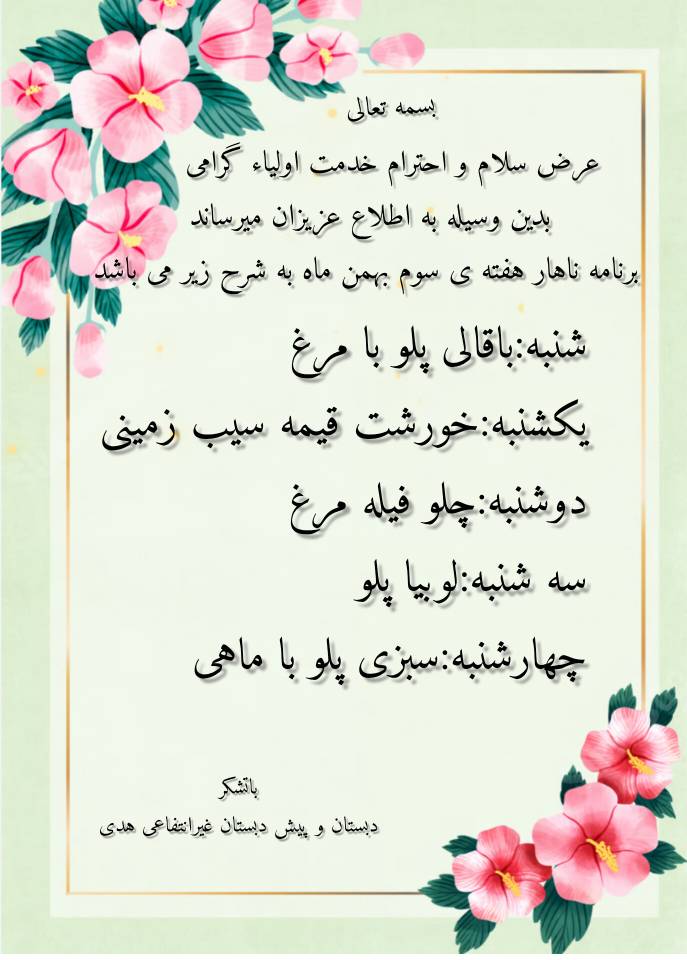 بسمه تعالی
عرض سلام و احترام خدمت اولیاء گرامی
بدین وسیله به اطلاع عزیزان میرساند
برنامه ناهار هفته ی سوم بهمن ماه به شرح زیر می باشد
شنبه:باقالی پلو با مرغ
یکشنبه:خورشت قیمه سیب زمینی
دوشنبه:چلو فیله مرغ
سه شنبه:لوبیا پلو
چهارشنبه:سبزی پلو با ماهی
باتشکر
دبستان و پیش دبستان غیرانتفاعی هدی